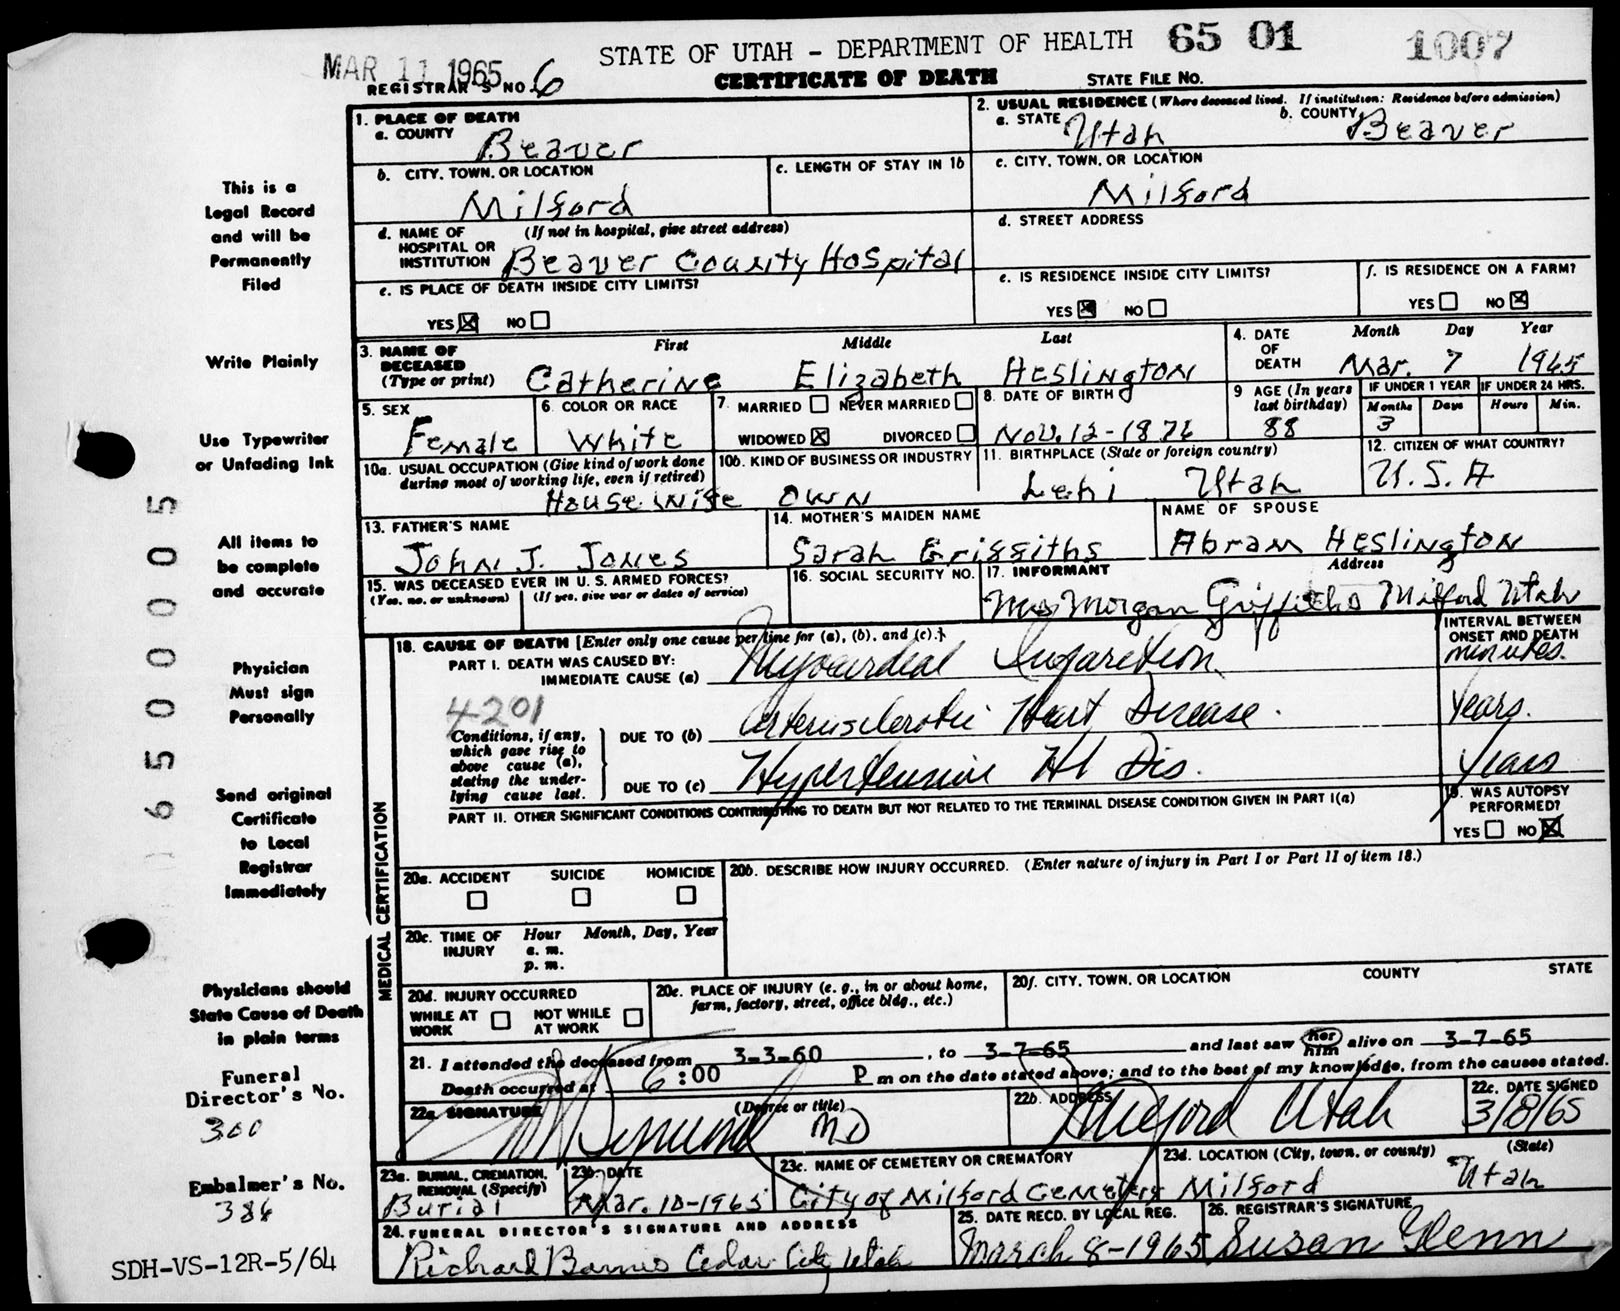 STATE OF UTAH - DEPARTMENT OF HEALTH 65 01 1007
MAR 11 1965
REGISTRAR'S NO. 6 CERTIFICATE OF DEATH STATE FILE NO.
1. PLACE OF DEATH
a. COUNTY Beaver
2. USUAL RESIDENCE (Where deceased lived. If institution: Residence before admission)
a. STATE Utah b. COUNTY Beaver
b. CITY, TOWN, OR LOCATION Milford
c. LENGTH OF STAY IN 1b
c. CITY, TOWN, OR LOCATION Milford
d. NAME OF HOSPITAL OR INSTITUTION (If not in hospital, give street address)
Beaver County Hospital
d. STREET ADDRESS
e. IS PLACE OF DEATH INSIDE CITY LIMITS?
YES ☒ NO ☐
e. IS RESIDENCE INSIDE CITY LIMITS?
YES ☒ NO ☐
f. IS RESIDENCE ON A FARM?
YES ☐ NO ☒
3. NAME OF DECEASED (Type or print) First Middle Last
Catherine Elizabeth Heslington
4. DATE OF DEATH Month Day Year
Mar. 7 1965
5. SEX Female
6. COLOR OR RACE White
7. MARRIED ☐ NEVER MARRIED ☐
WIDOWED ☒ DIVORCED ☐
8. DATE OF BIRTH Nov. 12-1876
9 AGE (In years last birthday) 88
IF UNDER 1 YEAR IF UNDER 24 HRS.
Months Days Hours Min.
3
10a. USUAL OCCUPATION (Give kind of work done during most of working life, even if retired)
House Wife
10b. KIND OF BUSINESS OR INDUSTRY
Own
11. BIRTHPLACE (State or foreign country)
Lehi Utah
12. CITIZEN OF WHAT COUNTRY?
U.S.A
13. FATHER'S NAME
John J. Jones
14. MOTHER'S MAIDEN NAME
Sarah Griffiths
NAME OF SPOUSE
Abram Heslington
15. WAS DECEASED EVER IN U. S. ARMED FORCES?
(Yes, no, or unknown) (If yes, give war or dates of service)
16. SOCIAL SECURITY NO.
17. INFORMANT Address
Mrs Morgan Griffiths Milford Utah
18. CAUSE OF DEATH [Enter only one cause per line for (a), (b), and (c).]
INTERVAL BETWEEN ONSET AND DEATH
PART I. DEATH WAS CAUSED BY:
IMMEDIATE CAUSE (a) Myocardial Infarction minutes.
4201
Conditions, if any, which gave rise to above cause (a), stating the underlying cause last.
DUE TO (b) Arteriosclerotic Heart Disease. Years.
DUE TO (c) Hypertensive Ht Dis. Years
PART II. OTHER SIGNIFICANT CONDITIONS CONTRIBUTING TO DEATH BUT NOT RELATED TO THE TERMINAL DISEASE CONDITION GIVEN IN PART I(a)
19. WAS AUTOPSY PERFORMED?
YES ☐ NO ☒
MEDICAL CERTIFICATION
20a. ACCIDENT SUICIDE HOMICIDE
☐ ☐ ☐
20b. DESCRIBE HOW INJURY OCCURRED. (Enter nature of injury in Part I or Part II of item 18.)
20c. TIME OF INJURY Hour Month, Day, Year
a. m.
p. m.
20d. INJURY OCCURRED
WHILE AT WORK ☐ NOT WHILE AT WORK ☐
20e. PLACE OF INJURY (e. g., in or about home, farm, factory, street, office bldg., etc.)
20f. CITY, TOWN, OR LOCATION COUNTY STATE
21. I attended the deceased from 3-3-60, to 3-7-65 and last saw her him alive on 3-7-65
Death occurred at 6:00 P m on the date stated above; and to the best of my knowledge, from the causes stated.
22a. SIGNATURE (Degree or title)
MD
22b. ADDRESS
Milford Utah
22c. DATE SIGNED
3/8/65
23a. BURIAL, CREMATION, REMOVAL (Specify)
Burial
23b. DATE
Mar. 10-1965
23c. NAME OF CEMETERY OR CREMATORY
City of Milford Cemetery
23d. LOCATION (City, town, or county) (State)
Milford Utah
24. FUNERAL DIRECTOR'S SIGNATURE AND ADDRESS
Richard Barnes Cedar City Utah
25. DATE RECD. BY LOCAL REG.
March 8-1965
26. REGISTRAR'S SIGNATURE
Susan Glenn
This is a
Legal Record
and will be
Permanently
Filed
Write Plainly
Use Typewriter
or Unfading Ink
All items to
be complete
and accurate
Physician
Must sign
Personally
Send original
Certificate
to Local
Registrar
Immediately
Physicians should
State Cause of Death
in plain terms
Funeral
Director's No.
300
Embalmer's No.
386
SDH-VS-12R-5/64
0650005